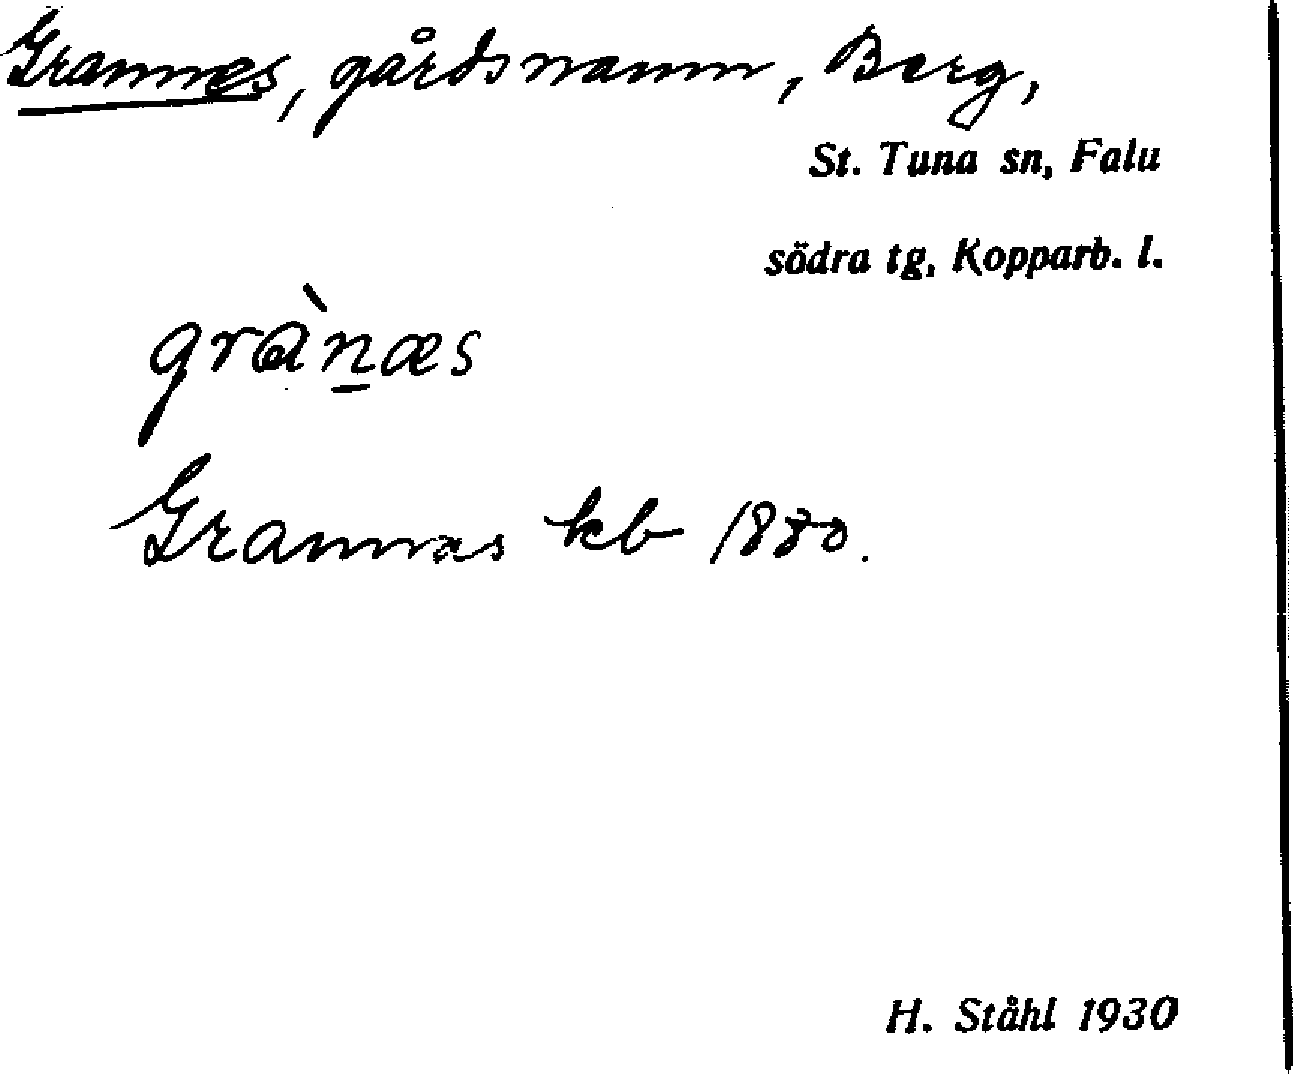 Grannes, gårdsnamn, Berg,
St. Tuna sn, Falu
södra tg, Kopparb. l.
grànæs
Grannas kb 1880.
H. Ståhl 1930